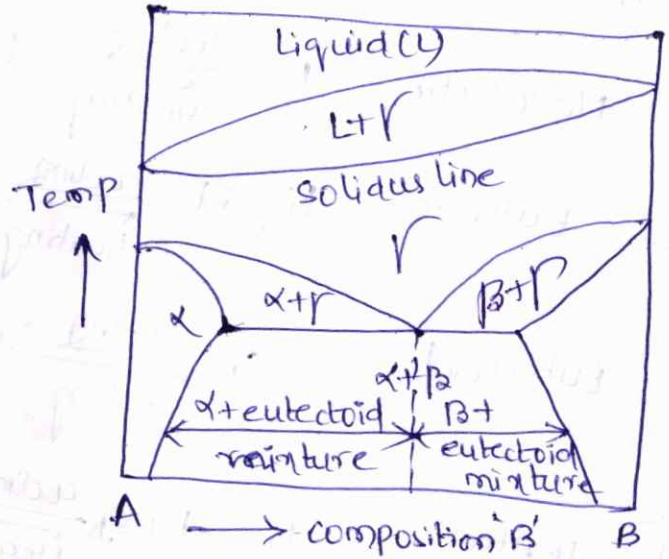 Liquid(L)
L+γ
solidus line
Temp
γ
α
α+γ
β+γ
α+β
α+eutectoid
mixture
β+
eutectoid
mixture
A
composition 'B'
B